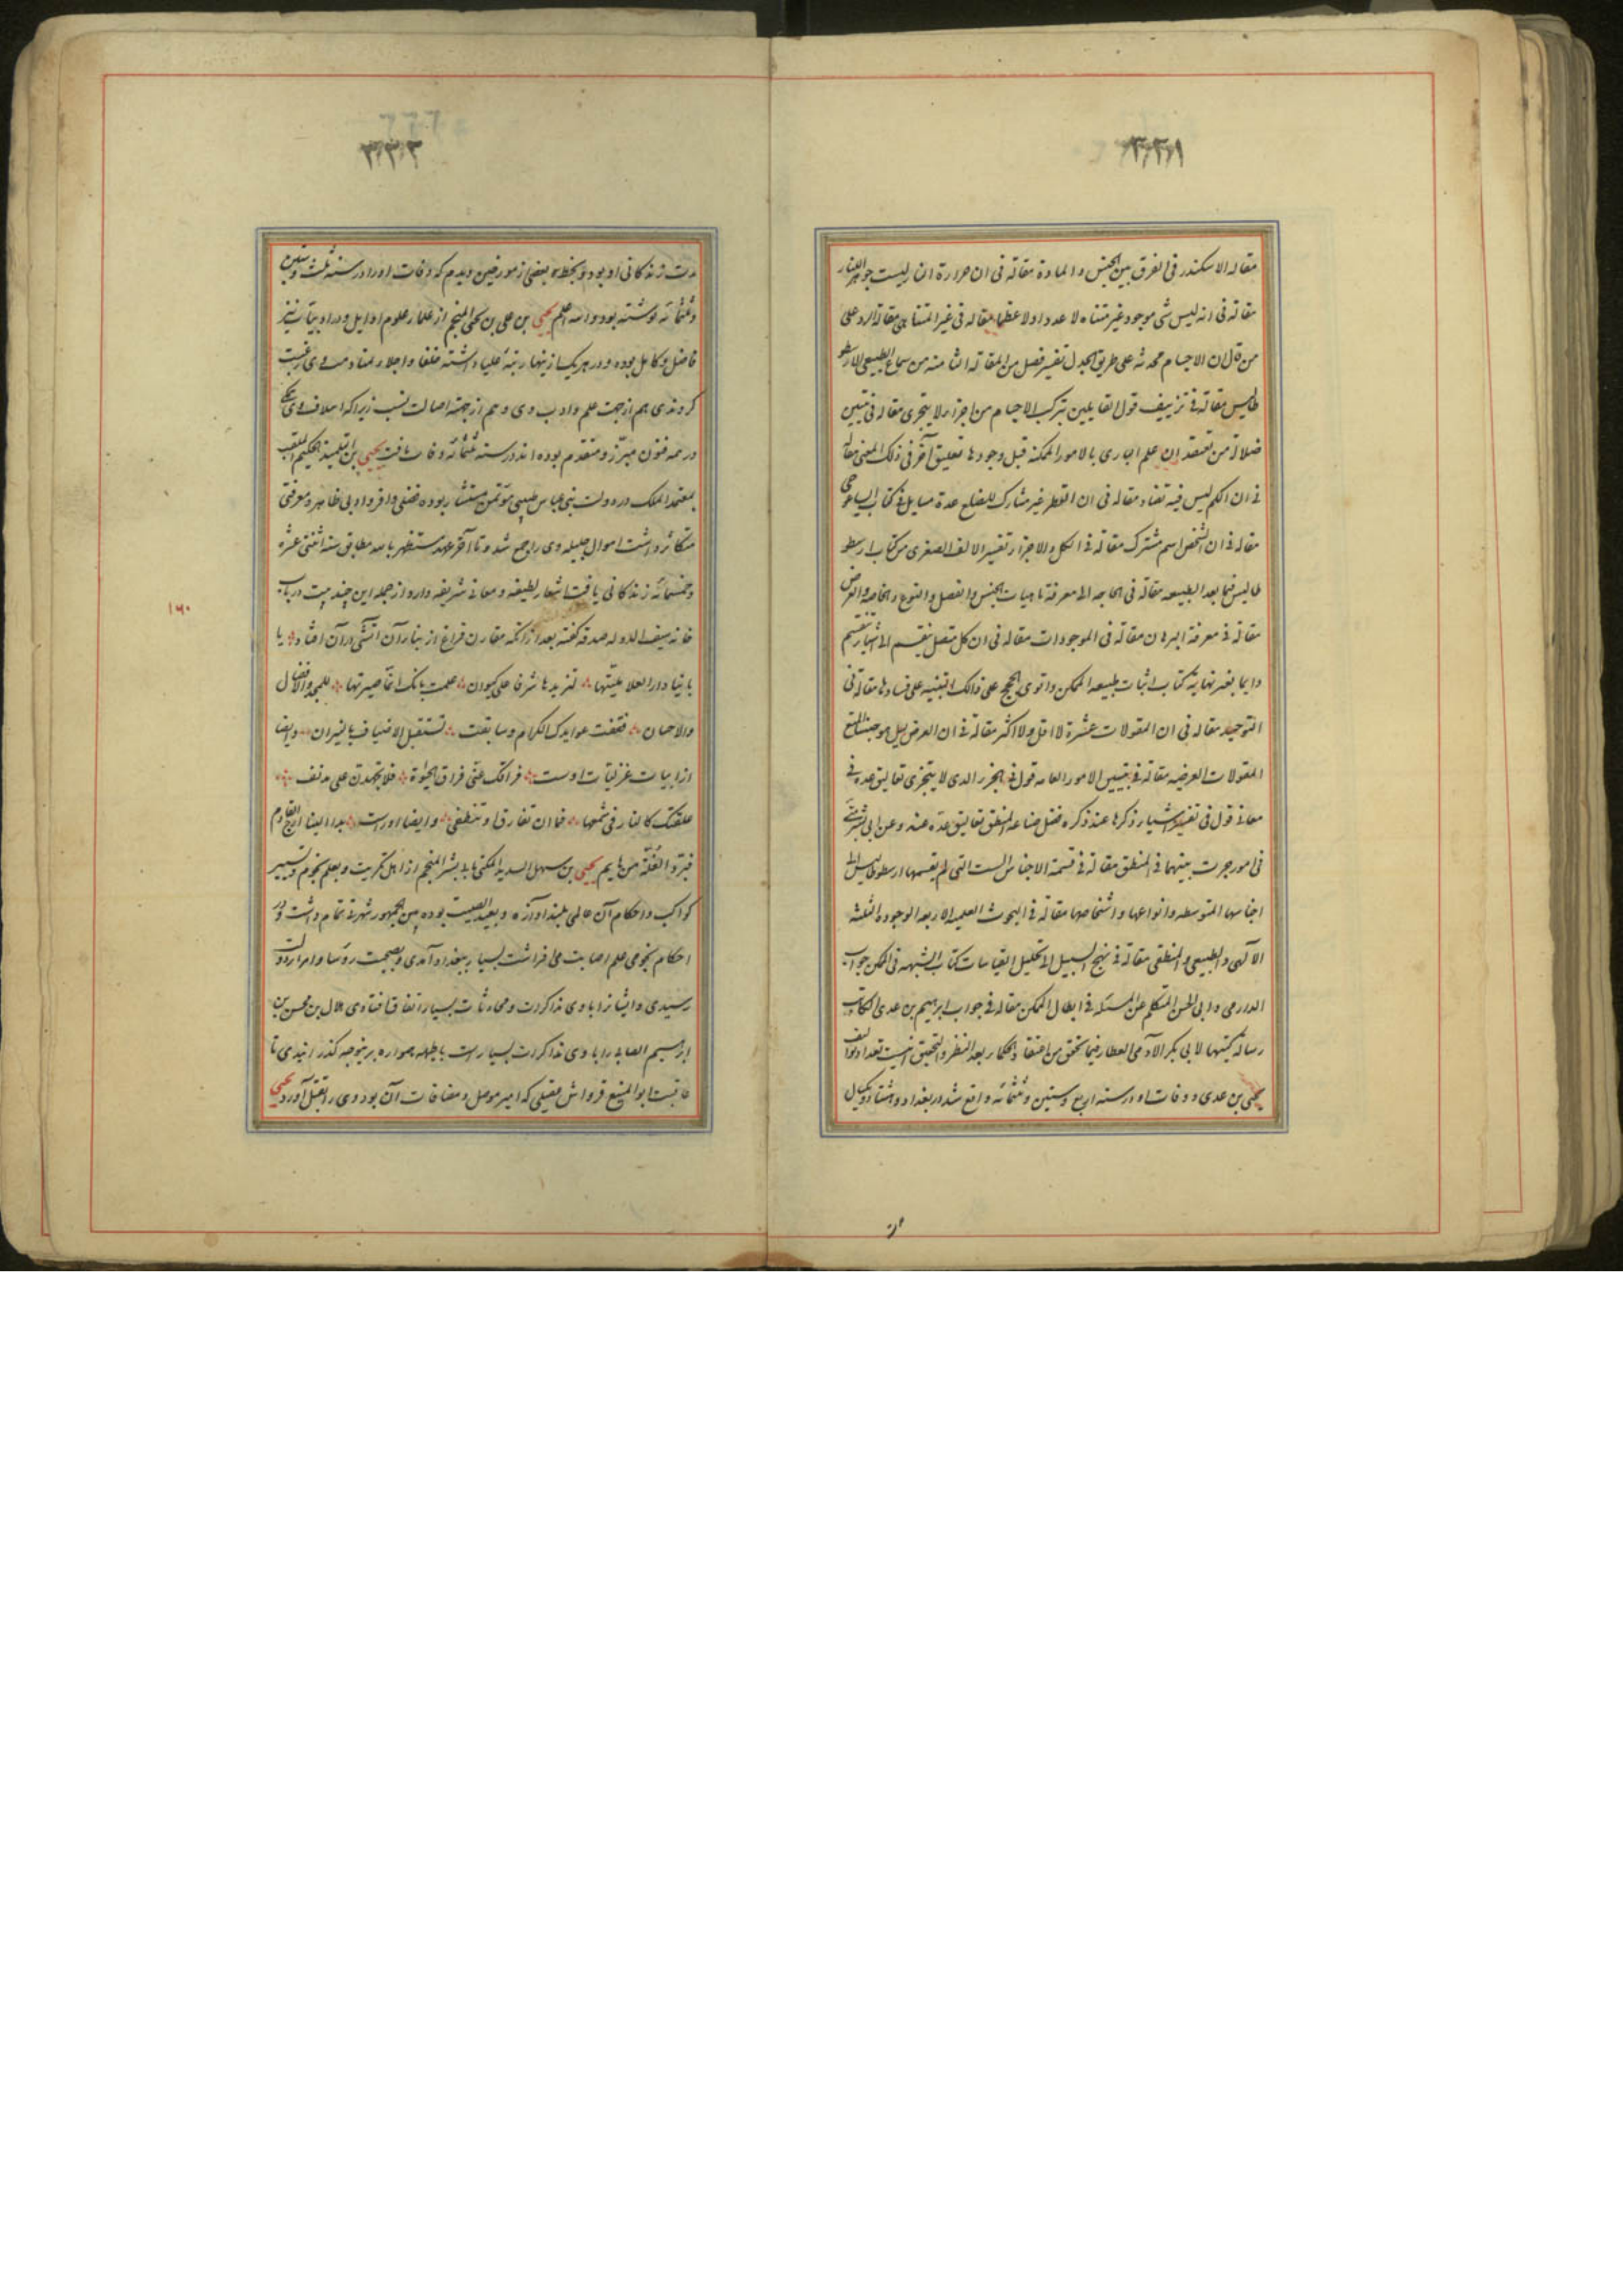 ۳۳۱
مقاله الاسکندر فی الفرق بین الجنس و المادة مقالة فی ان حرارة النار لیست جوهر اللنار
مقالة فی انه لیس شی موجود غیر متناه لا عددا ولا عظما مقاله فی غیر المتناهی مقالة الرد علی
من قال ان الاجسام محدثه علی طریق الجدل تفسیر فصل من المقالة الثامنه من سماع الطبیعی لارسطو
طالیس مقالة فی تزییف قول القایلین بترکب الاجسام من اجزاء لا یتجزی مقاله فی تبیین
ضلالة من یعتقد ان علم الباری بالامور الممکنة قبل وجودها تعلیق آخر فی ذلک المعنی مقاله
فی ان الکم لیس فیه تضاد مقاله فی ان القطر غیر مشارک للضلع عدة مسایل فی کتاب ایساغوجی
مقاله فی ان الشخص اسم مشترک مقالة فی الکل و الاجزاء تفسیر الالف الصغری من کتاب ارسطو
طالیس فیما بعد الطبیعه مقالة فی الحاجه الی معرفة ماهیات الجنس و الفصل و النوع و الخاصه و العرض
مقالة فی معرفة البرهان مقالة فی الموجودات مقاله فی ان کل متصل ینقسم الی اشیاء تنقسم
دایما بغیر نهایة کتاب اثبات طبیعه الممکن و اقوی الحجج علی ذالک و التنبیه علی فسادها مقاله فی
التوحید مقاله فی ان المقولات عشرة لا اقل ولا اکثر مقالة فی ان العرض لیس هو جنسا للتسع
المقولات العرضیه مقالة فی تبیین الامور العامه قول فی الجزء الذی لا یتجزی تعالیق عدة فی
معانی قول فی تفسیر اشیاء ذکرها عند ذکره فضل صناعه المنطق تعالیق عدة عنه و عن ابی بشر متی
فی امور جرت بینهما فی المنطق مقالة فی قسمة الاجناس الست التی لم یقسمها ارسطوطالیس الی
اجناسها المتوسطه و انواعها و اشخاصها مقالة فی البحوث العلمیه الاربعه الوجود و الثلثه
الآلهی و الطبیعی و المنطقی مقالة فی نهج السبیل الی تحلیل القیاسات کتاب الشبهه فی الممکن جواب
الدارمی و ابی الحسن المتکلم عن المسئله فی ابطال الممکن مقاله فی جواب ابرهیم بن عدی الکاتب
رسالة کتبها لابی بکر الآدمی العطار فیما تحقق من اعتقاد الحکماء بعد النظر و التحقیق اینست تعداد توالیف
یحیی بن عدی و وفات او در سنه اربع و ستین و ثلثمائه واقع شد در بغداد و هشتاد و یکسال
۳۳۲
مدت زندکانی او بود و بخط بعضی از مورخین دیدم که وفات او را در سنه ثلث و ستین
و ثلثمائه نوشته بود و الله اعلم یحیی بن علی بن یحیی المنجم از علماء علوم اوایل و در ادبیات نیز
فاضل و کامل بوده و در هر یک از ینها رتبهٔ علیا داشته خلفا و اجلاء بمنادمت وی رغبت
کردندی هم از جهت علم و ادب وی و هم از جهة اصالت نسب زیرا که اسلاف وی یکی
در همه فنون مبرّز و متقدم بوده اند در سنه ثلثمائه وفات یافت یحیی بن التلمیذ الحکیم الملقب
بمعتمد الملک در دولت بنی عباس طبیبی مؤتمن مستشار بوده فضلی وافر و ادبی ظاهر و معرفتی
متکاثر داشت اموال جلیله وی را جمع شد و تا آخر عهد مستظهر بالله مطابق سنه اثنتی عشره
و خمسمائه زندکانی یافت اشعار لطیفه و معانی شریفه دارد از جمله این چند بیت در باب
خانه سیف الدوله صدقه کفته بعد از آنکه مقارن فراغ از بنا آن آتشی در آن افتاد یا
بانیا دار العلا علیتها لتزیدها شرفا علی کیوان علمت بانک انما صیرتها للمجد و الافضال
و الاحسان فقفت عوایدک الکرام و سابقت تستقبل الاضیاف بالنیران و ایضا
از ابیات غزلیات اوست فراقک عنی فراق الحیوة فلا تجهدن علی مدنف
علقتک کالنار فی شمعها فما ان تفارق او تنطفی و ایضا او راست بدا الینا ارج القادم
فبرد الغلة من هایم یحیی بن سهل السدید المکنی بابی بشر المنجم از اهل تکریت و بعلم نجوم و تسییر
کواکب و احکام آن عالمی بلند آوازه و بعید الصیت بوده بین الجمهور شهرتی تمام داشت و در
احکام نجومی علم اصابت می افراشت بسیار ببغداد آمدی و بصحبت رؤسا و امراء دولت
رسیدی و ایشانرا با وی مذاکرت و محادثات بسیار اتفاق افتادی هلال بن محسن بن
ابرهیم الصابی را با وی مذاکرات بسیارست بالجمله همواره برینوجه کذرانیدی تا
عاقبت ابو المنیع قرواش عقیلی که امیر موصل و مضافات آن بود وی را بقتل آورد یحیی
۱۶۰